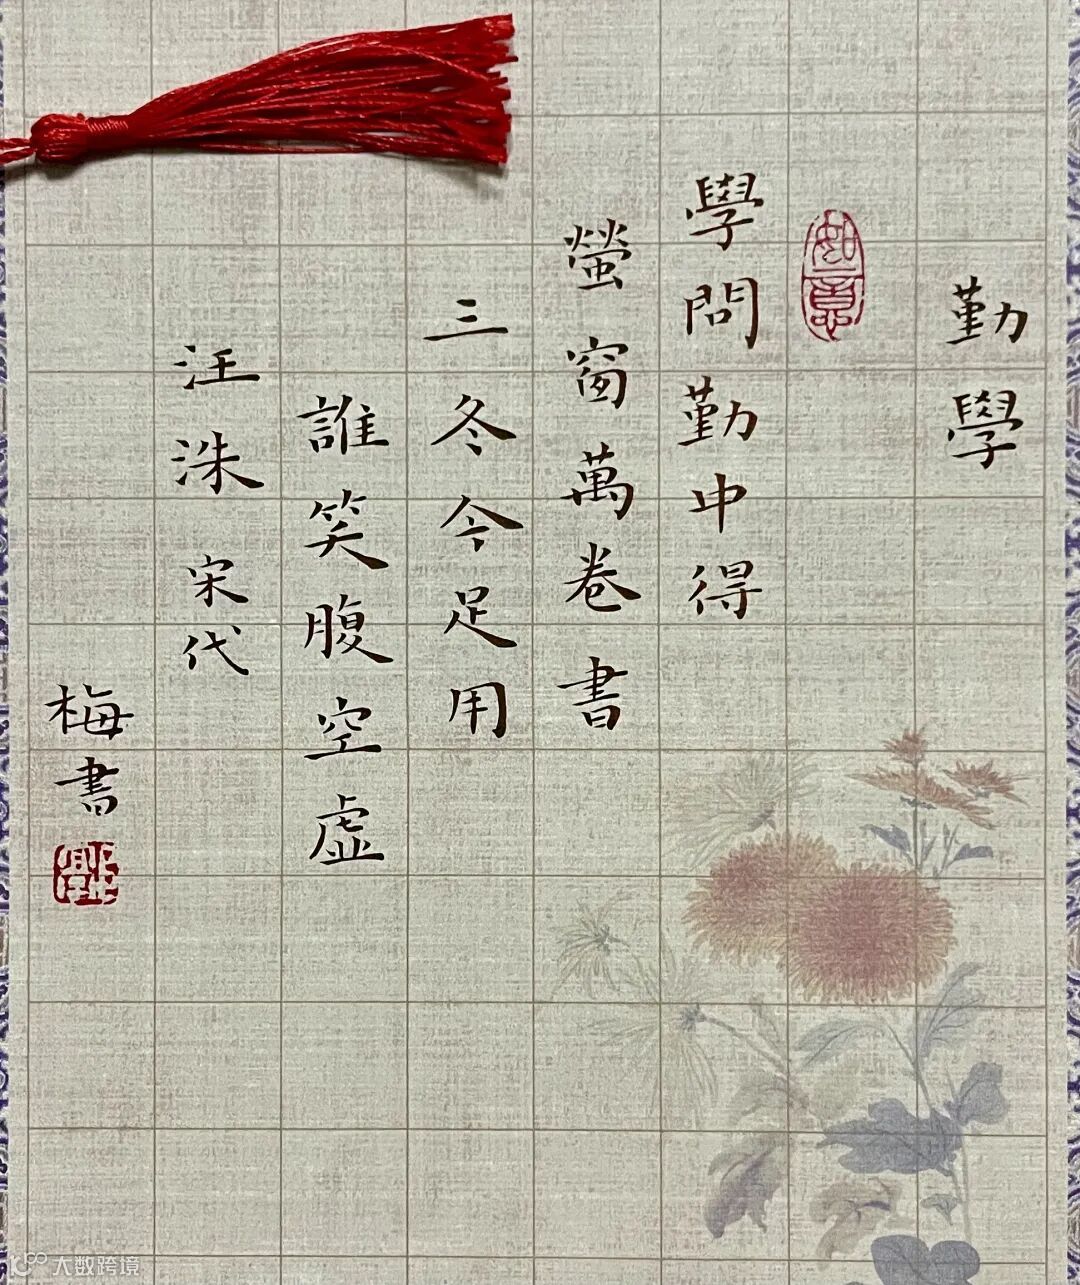 勤學
如意
學問勤中得
螢窗萬卷書
三冬今足用
誰笑腹空虛
汪洙 宋代
梅書
大数跨境